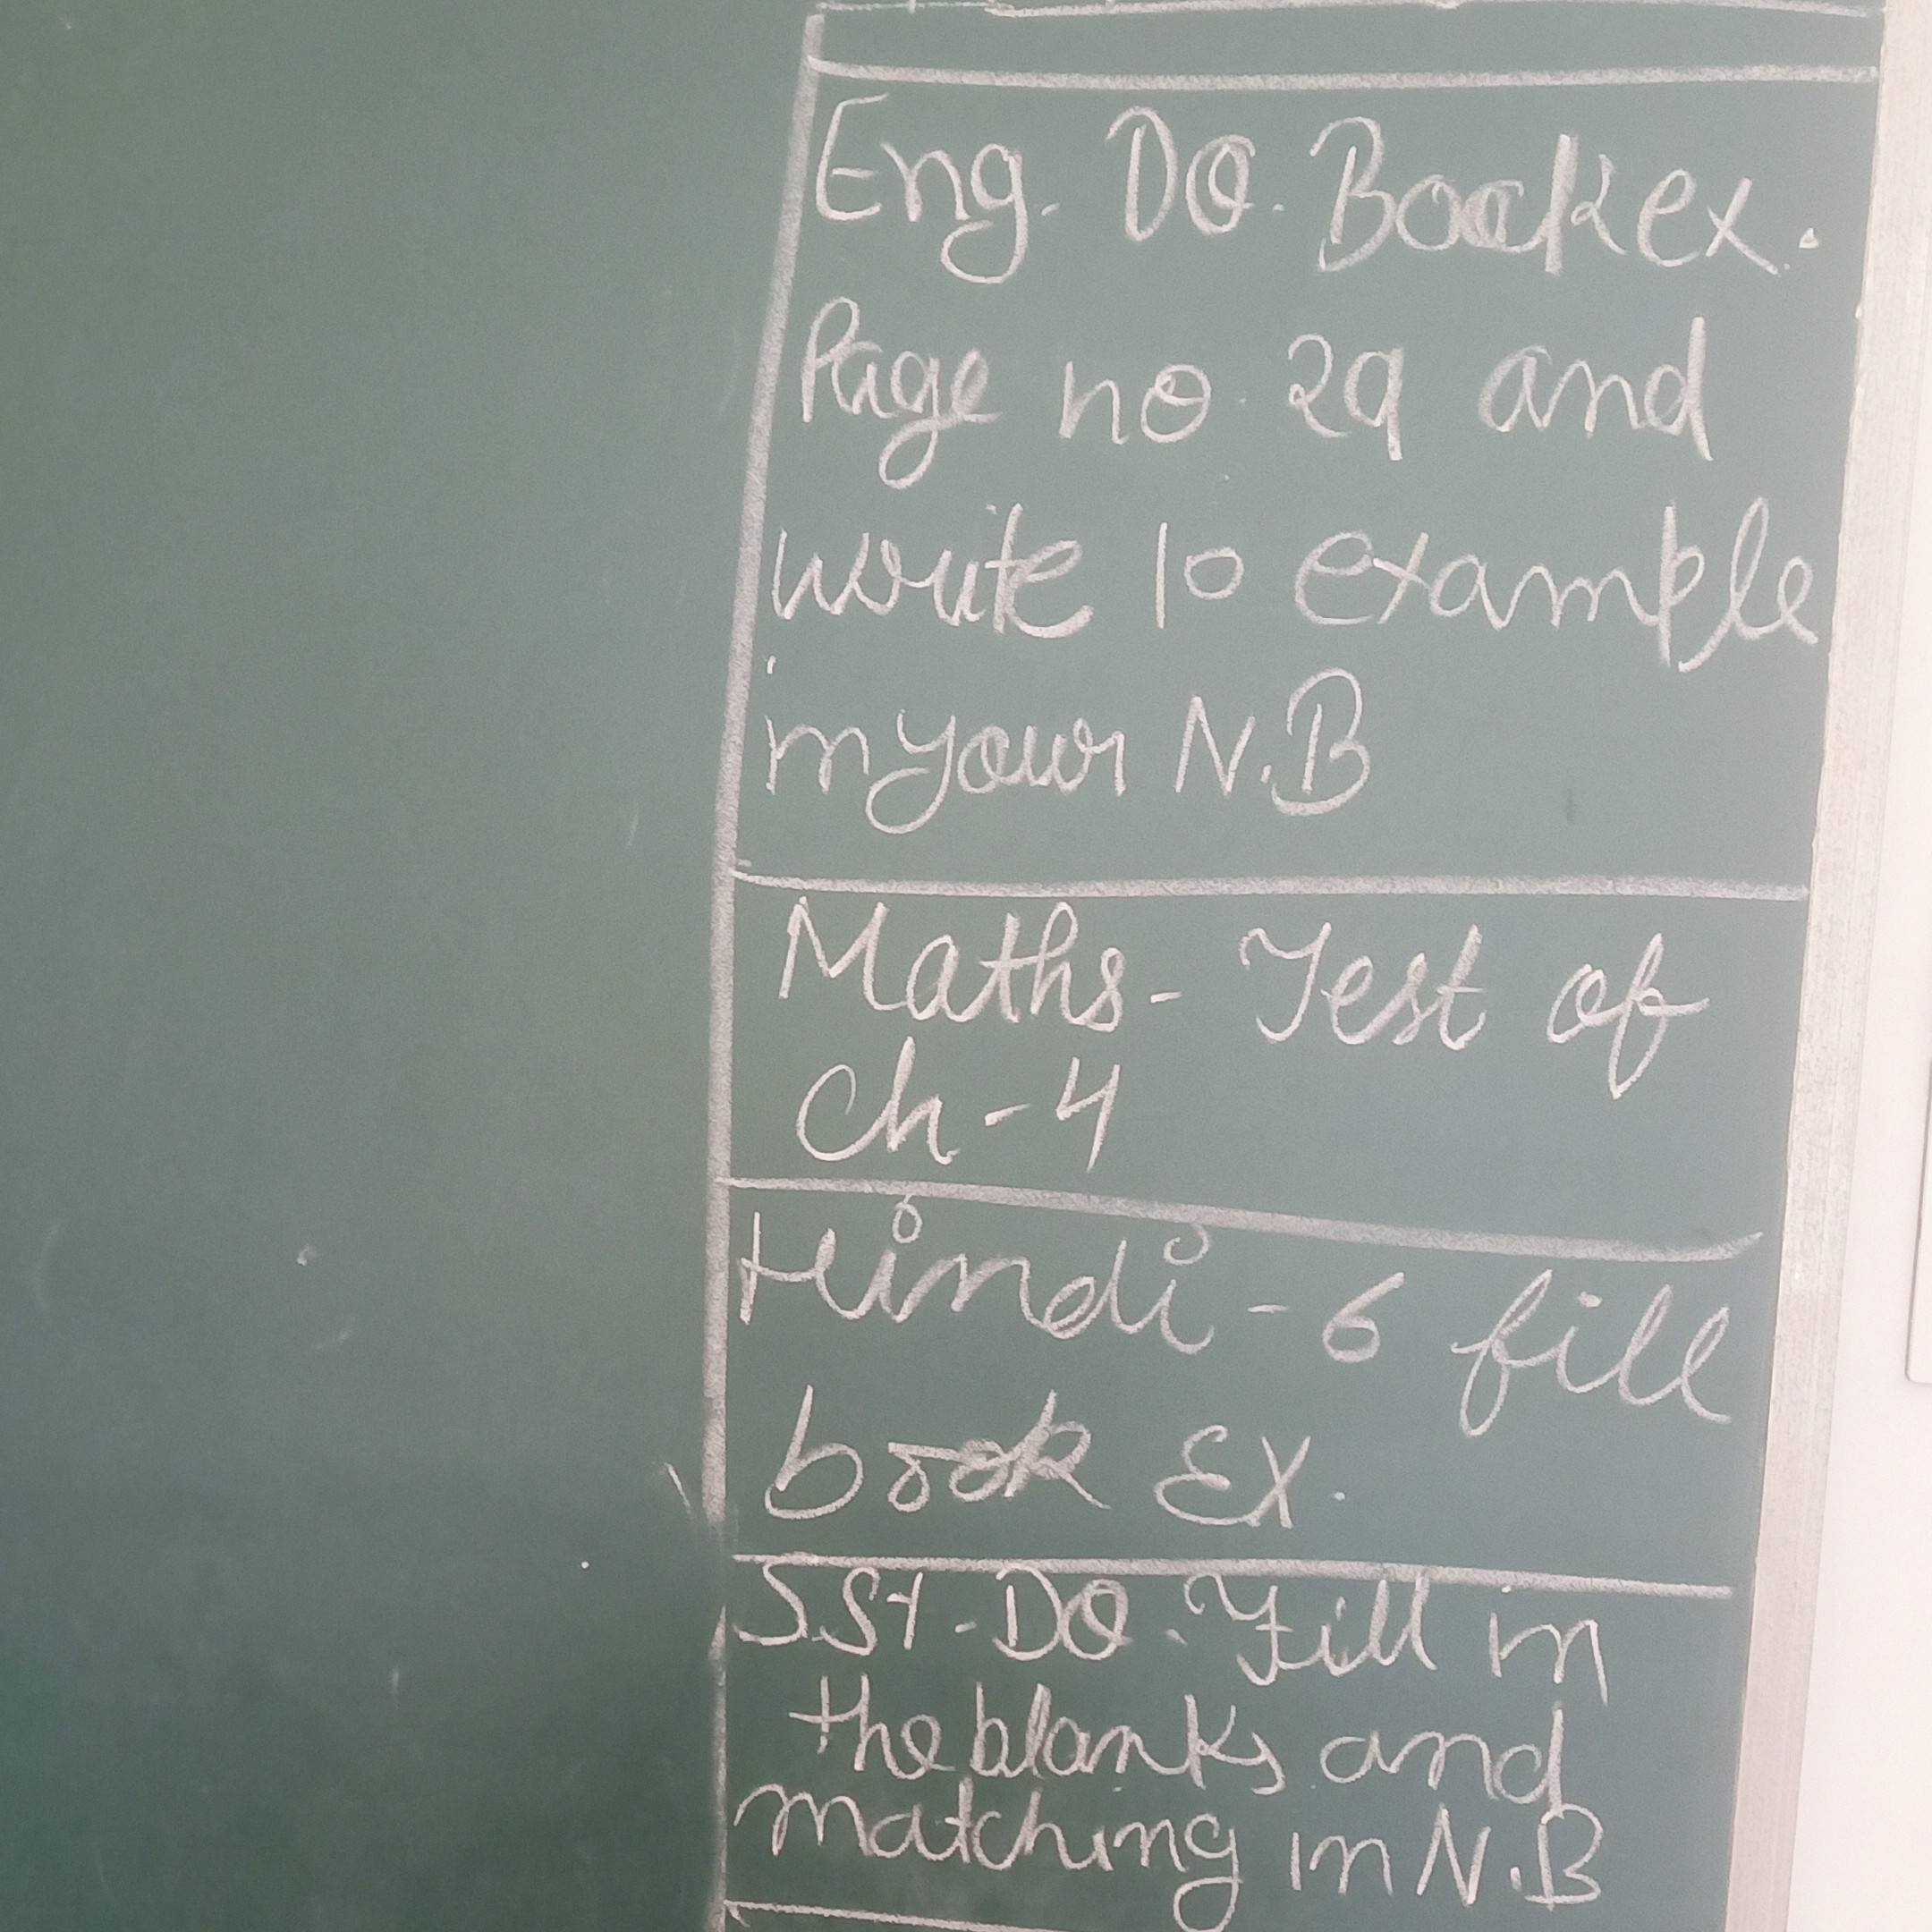 Eng. Do. Book ex.
Page no. 29 and
write 10 example
in your N.B
Maths- Test of
Ch-4
Hindi - 6 fill
book Ex.
S.St - Do. Fill in
the blanks and
matching in N.B